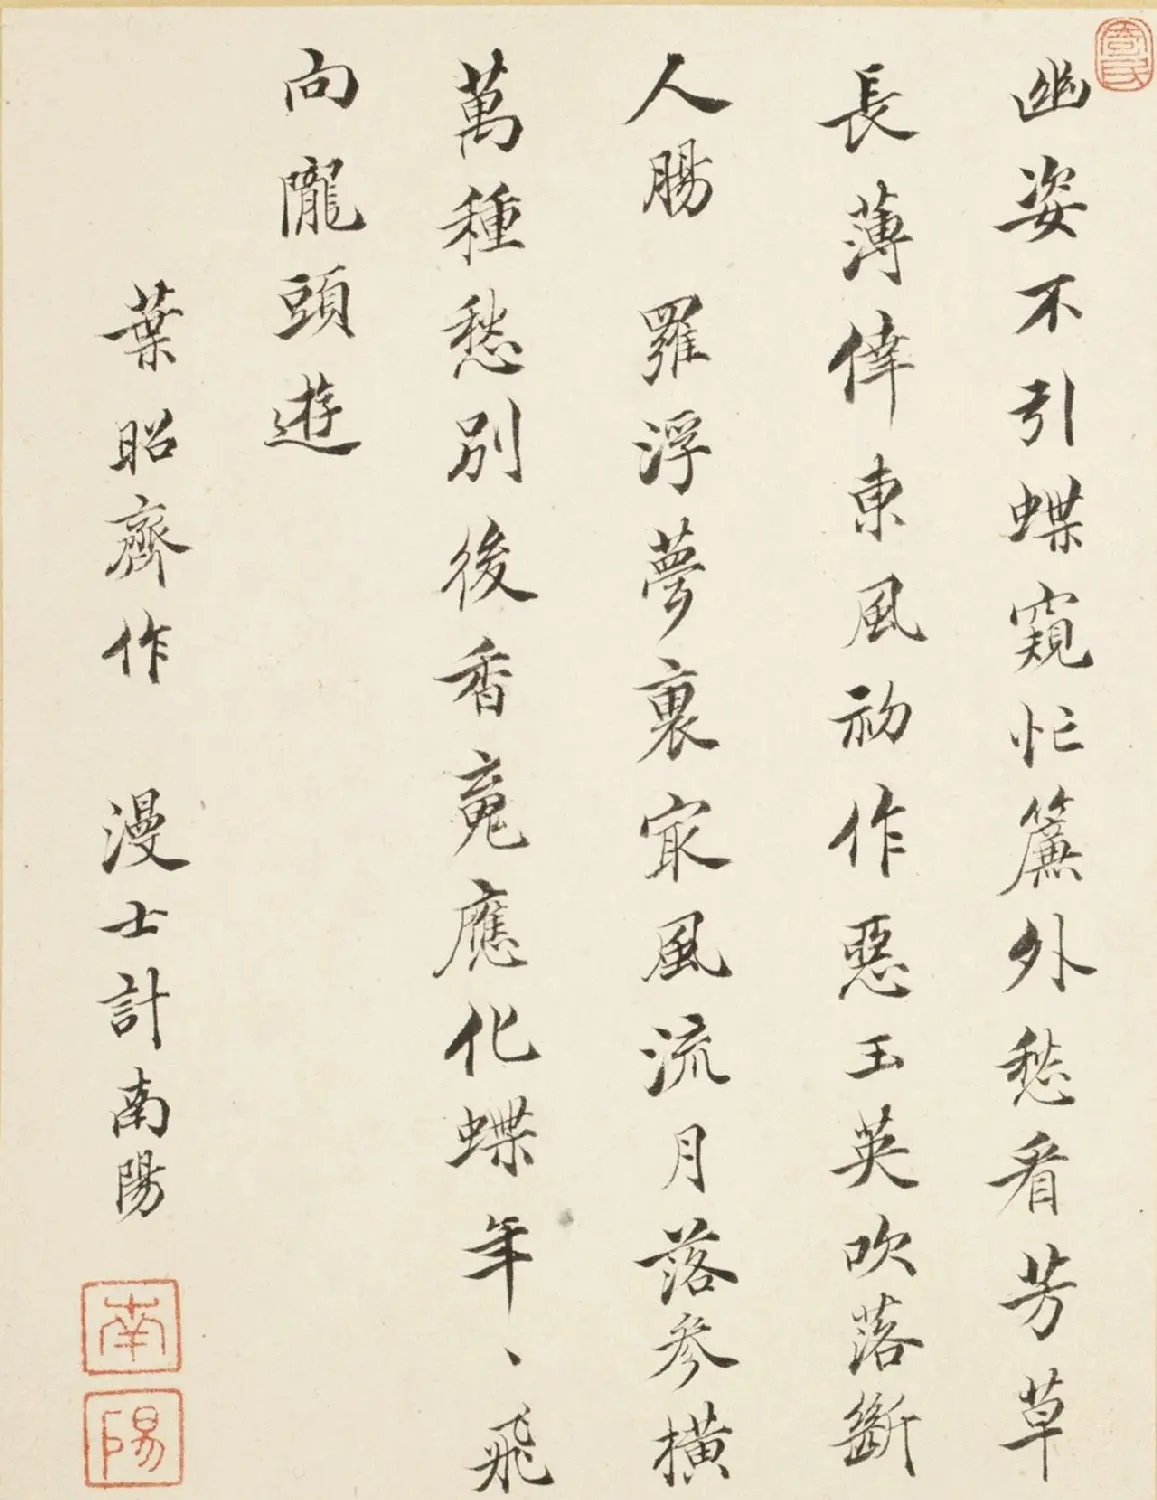 幽姿不引蝶窺忙簾外愁看芳草
長薄倖東風初作惡玉英吹落斷
人腸 羅浮夢裏冣風流月落參橫
萬種愁別後香䰟應化蝶年、飛
向隴頭遊
葉昭齊作 漫士計南陽
南
陽